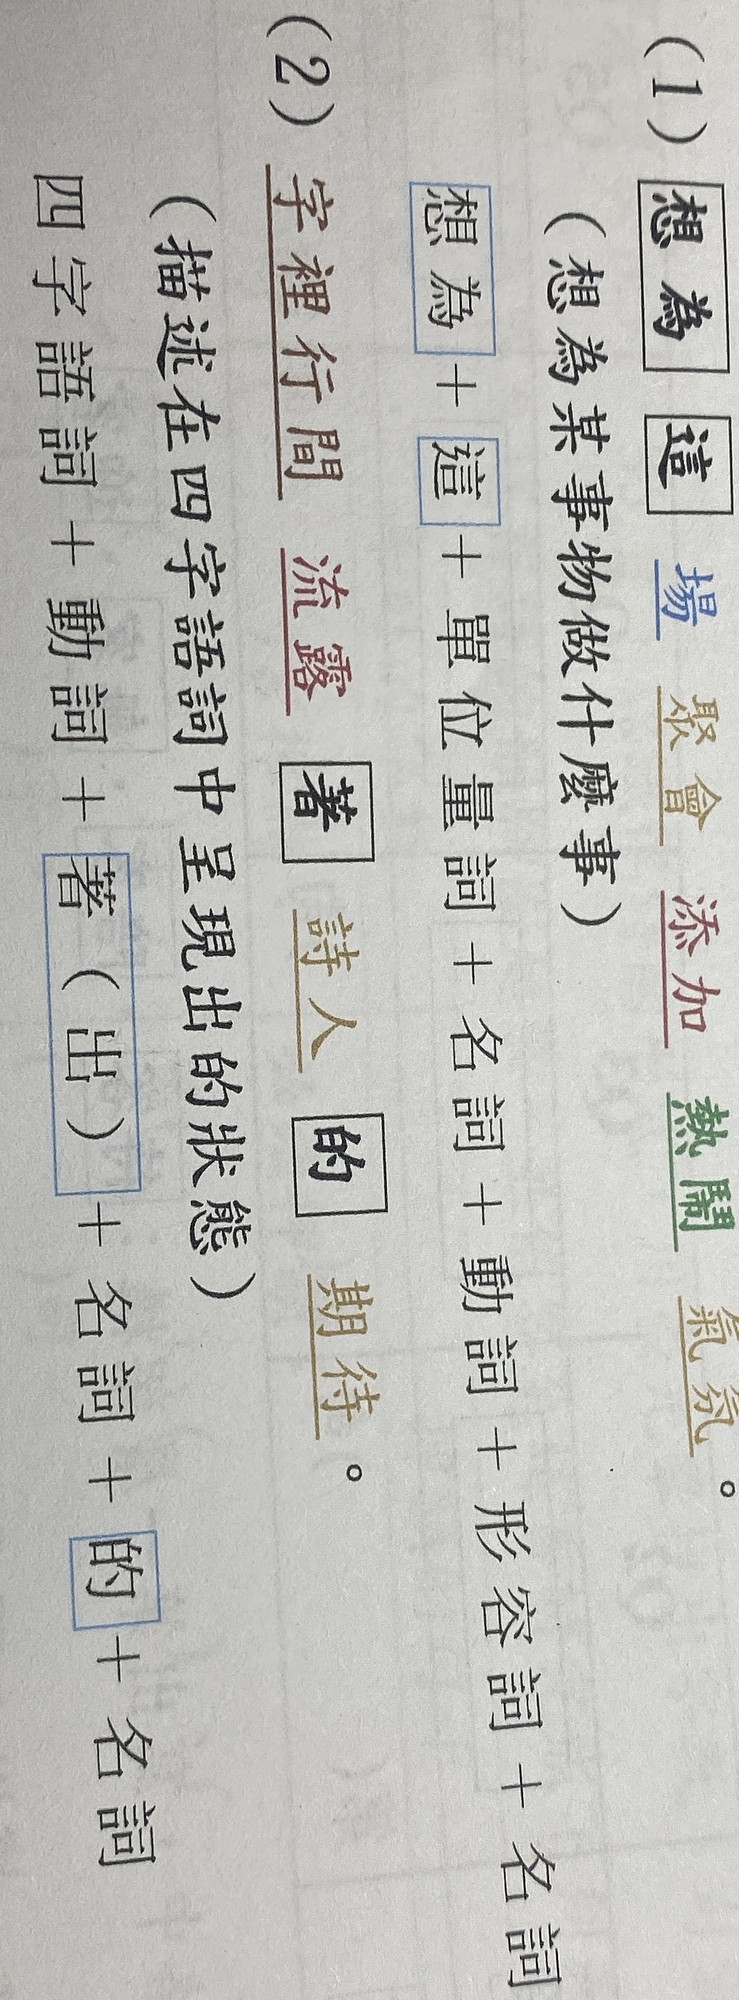 (1) 想為 這 場 聚會 添加 熱鬧 氣氛。
(想為某事物做什麼事)
想為+這+單位量詞+名詞+動詞+形容詞+名詞
(2) 字裡行間 流露 著 詩人 的 期待。
(描述在四字語詞中呈現出的狀態)
四字語詞+動詞+著(出)+名詞+的+名詞